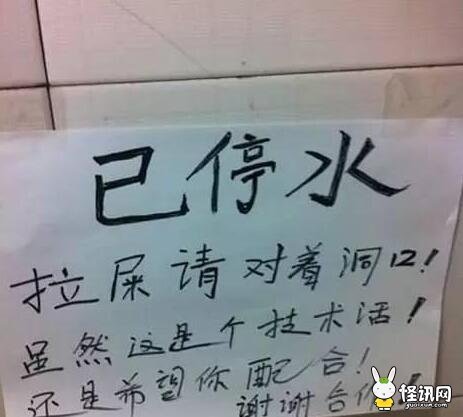 已停水
拉屎请对着洞口!
虽然这是个技术活!
还是希望你配合!
谢谢合作!
怪讯网
guaixun.com